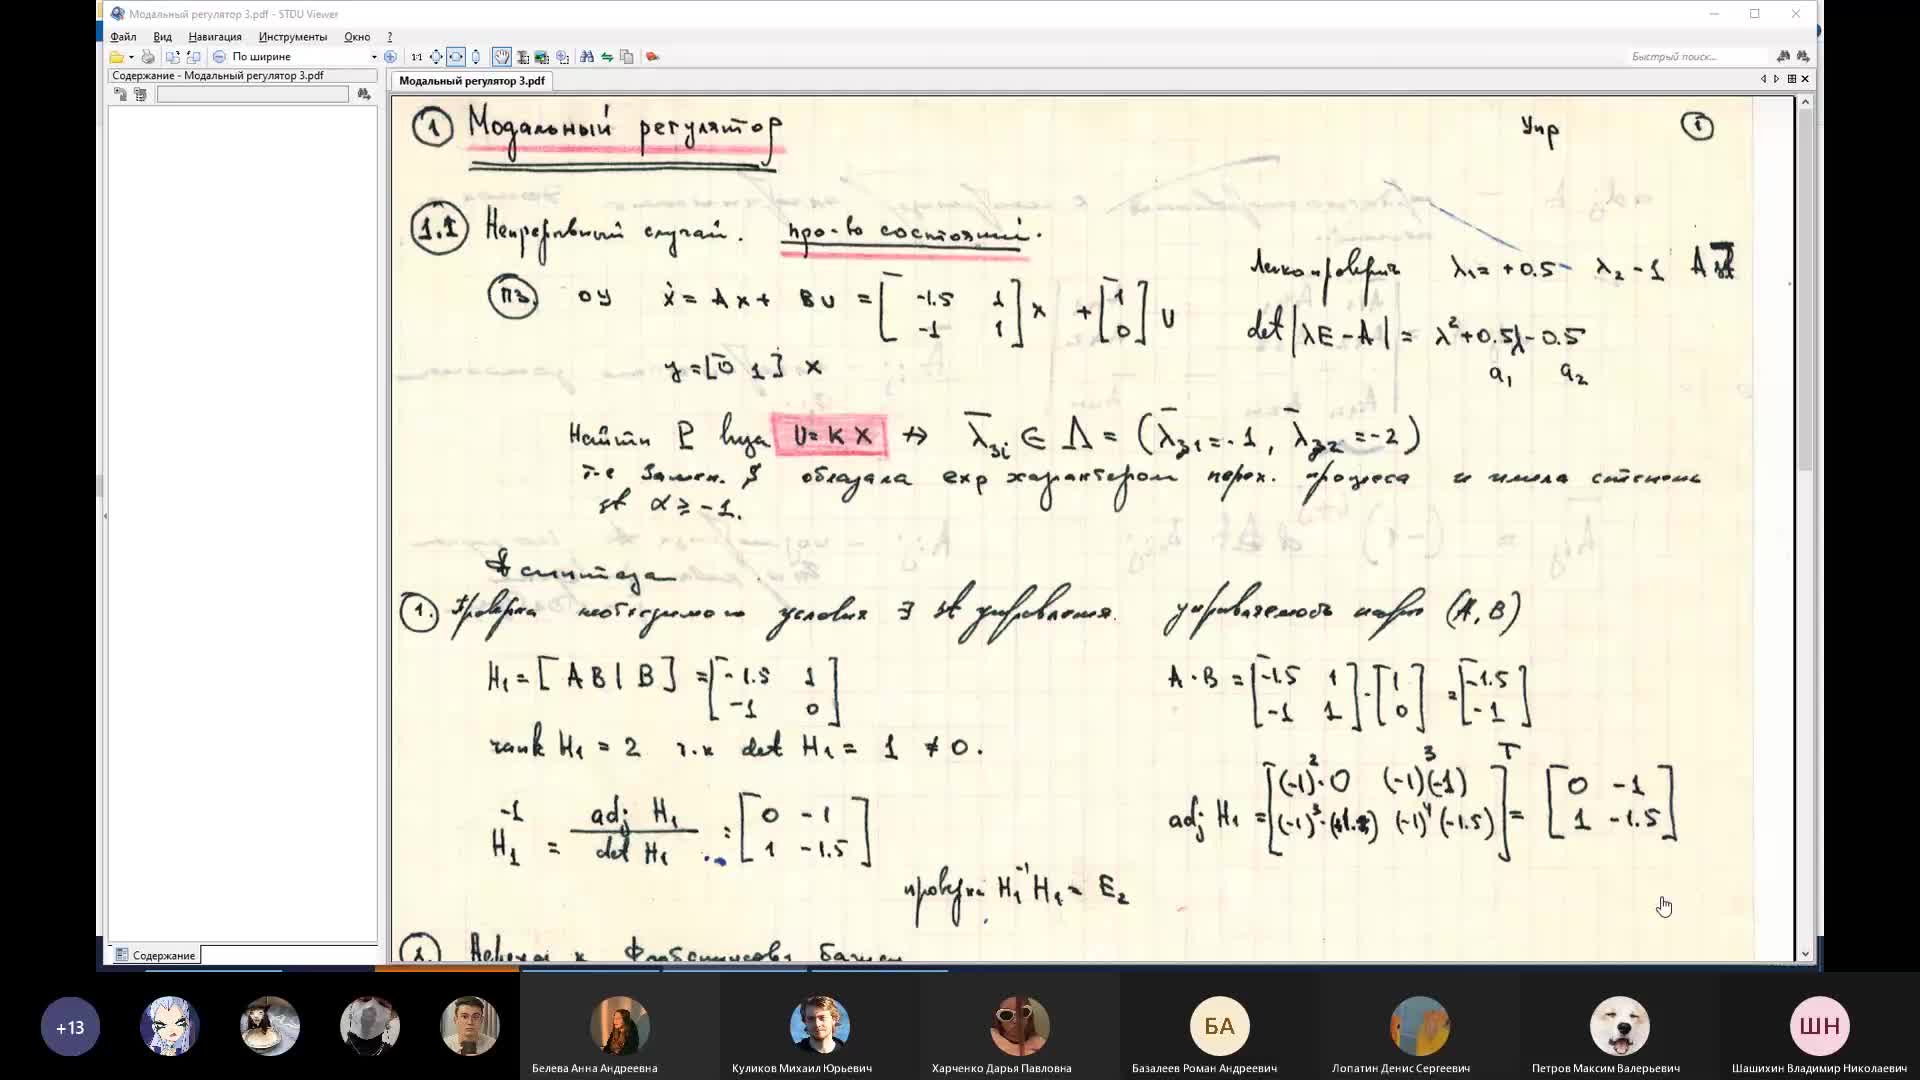 Модальный регулятор 3.pdf - STDU Viewer
Файл Вид Навигация Инструменты Окно ?
По ширине 1:1 Быстрый поиск...
Содержание - Модальный регулятор 3.pdf
Модальный регулятор 3.pdf
1 Модальный регулятор Упр 1
1.1 Непрерывный случай. пр-во состояний.
Легко проверить λ₁ = +0.5 λ₂ -1
ПЗ. ОУ ẋ = Ax + BU = [-1.5 1; -1 1] x + [1; 0] U
det |λE - A| = λ² + 0.5λ - 0.5
a₁ a₂
y = [0 1] x
Найти P вида U = K X → λ̄₃ᵢ ∈ Λ = (λ̄₃₁ = -1, λ̄₃₂ = -2)
т-е замкн. обладала exp характером перех. процесса и имела степень
st α ≥ -1.
синтеза
1. Проверка необходимого условия ∃ st управления. управляемость пары (A, B)
H₁ = [AB | B] = [-1.5 1; -1 0]
A·B = [-1.5 1; -1 1]·[1; 0] = [-1.5; -1]
rank H₁ = 2 т.к det H₁ = 1 ≠ 0.
adj H₁ = [(-1)²·0 (-1)³(-1); (-1)³·(1) (-1)⁴(-1.5)]ᵀ = [0 -1; 1 -1.5]
H₁⁻¹ = adj H₁ / det H₁ = [0 -1; 1 -1.5]
проверка H₁⁻¹ H₁ = E₂
2. Переход к Фробениусову базису
Содержание
+13
Белева Анна Андреевна
Куликов Михаил Юрьевич
Харченко Дарья Павловна
БА
Базалеев Роман Андреевич
Лопатин Денис Сергеевич
Петров Максим Валерьевич
ШН
Шашихин Владимир Николаевич